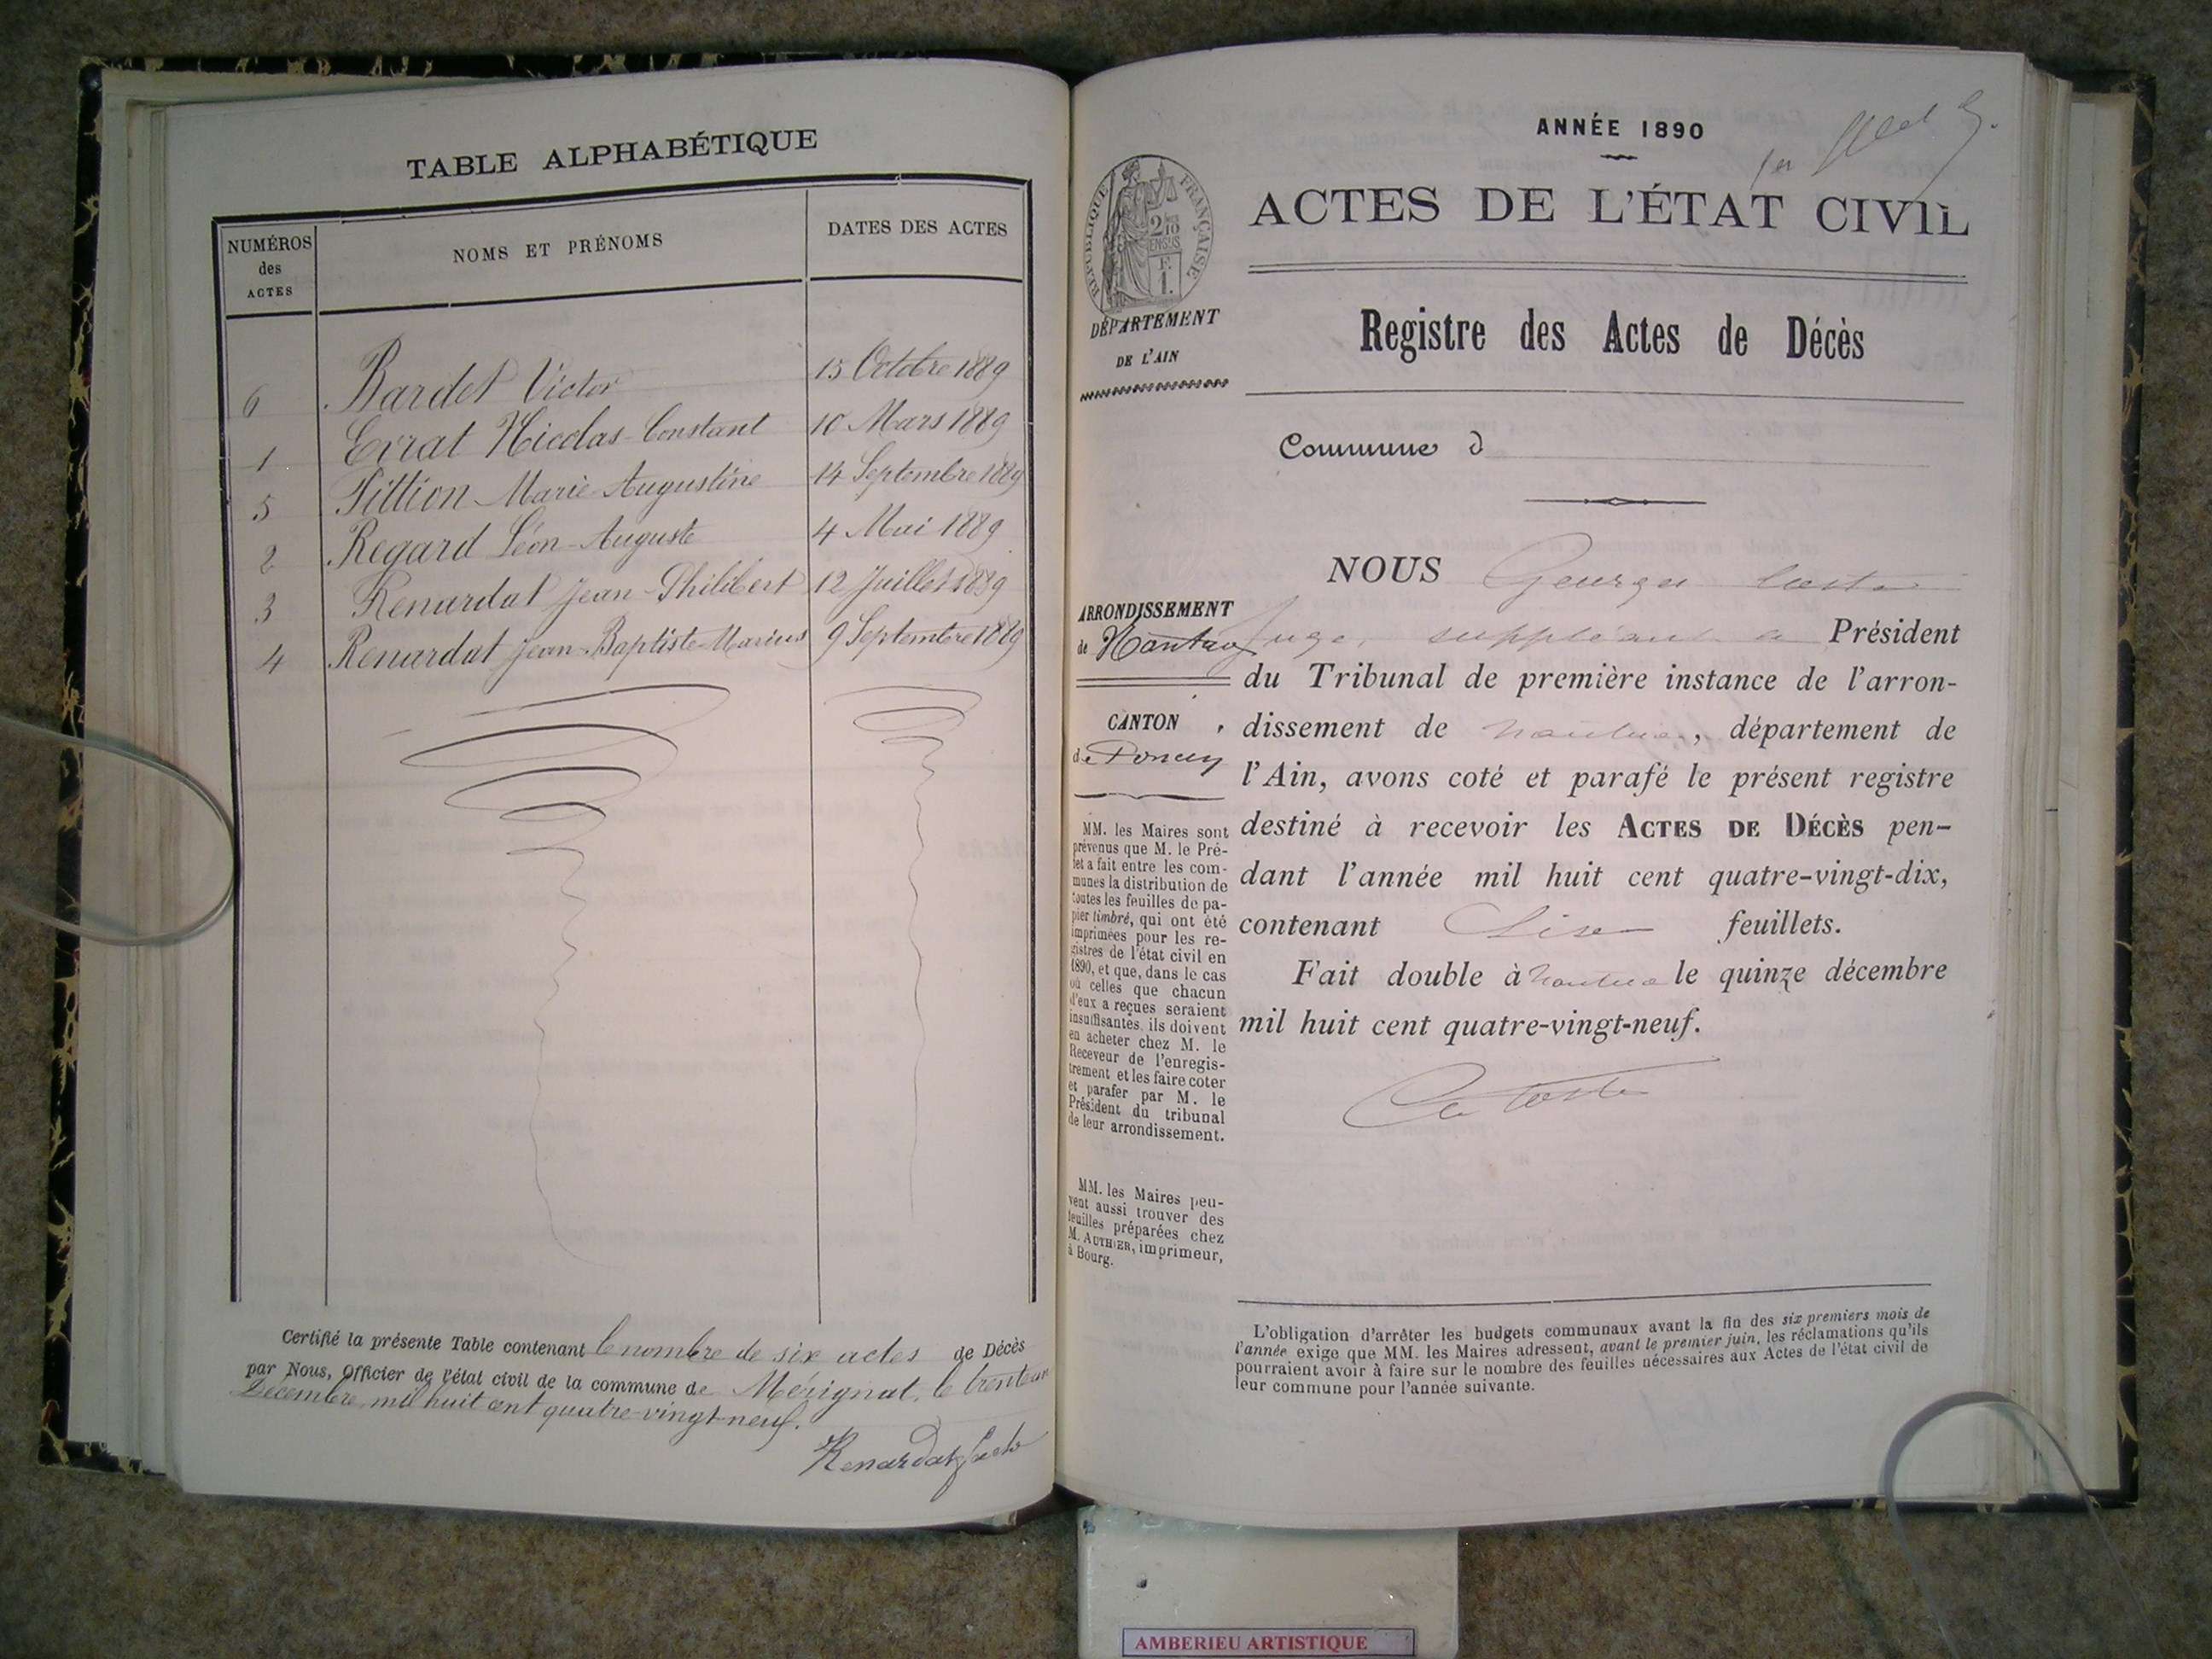 TABLE ALPHABÉTIQUE
NUMÉROS des ACTES
NOMS ET PRÉNOMS
DATES DES ACTES
6 Bardet Victor 15 Octobre 1889
1 Evrat Nicolas Constant 10 Mars 1889
5 Pittion Marie Augustine 14 Septembre 1889
2 Regard Léon Auguste 4 Mai 1889
3 Renardat Jean Philibert 12 Juillet 1889
4 Renardat Jean Baptiste Marius 9 Septembre 1889
Certifié la présente Table contenant le nombre de six actes de Décès
par Nous, Officier de l'état civil de la commune de Mérignat, le trente un
Décembre mil huit cent quatre-vingt-neuf.
Renardat
ANNÉE 1890
1er
ACTES DE L'ÉTAT CIVIL
RÉPUBLIQUE FRANÇAISE
DÉPARTEMENT
DE L'AIN
Registre des Actes de Décès
Commune d
ARRONDISSEMENT
de Nantua
CANTON
de Poncin
MM. les Maires sont
prévenus que M. le Pré-
fet a fait entre les com-
munes la distribution de
toutes les feuilles de pa-
pier timbré, qui ont été
imprimées pour les re-
gistres de l'état civil en
1890, et que, dans le cas
où celles que chacun
d'eux a reçues seraient
insuffisantes, ils doivent
en acheter chez M. le
Receveur de l'enregis-
trement et les faire coter
et parafer par M. le
Président du tribunal
de leur arrondissement.
MM. les Maires peu-
vent aussi trouver des
feuilles préparées chez
M. AUTHIER, imprimeur,
à Bourg.
NOUS Georges
Juge suppléant Président
du Tribunal de première instance de l'arron-
dissement de Nantua, département de
l'Ain, avons coté et parafé le présent registre
destiné à recevoir les ACTES DE DÉCÈS pen-
dant l'année mil huit cent quatre-vingt-dix,
contenant Six feuillets.
Fait double à Nantua le quinze décembre
mil huit cent quatre-vingt-neuf.
L'obligation d'arrêter les budgets communaux avant la fin des six premiers mois de
l'année exige que MM. les Maires adressent, avant le premier juin, les réclamations qu'ils
pourraient avoir à faire sur le nombre des feuilles nécessaires aux Actes de l'état civil de
leur commune pour l'année suivante.
AMBERIEU ARTISTIQUE